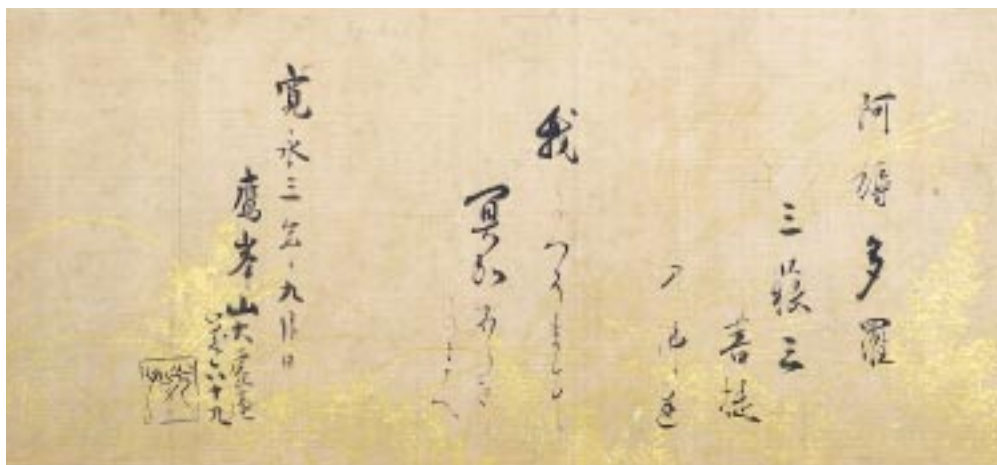 阿耨多羅
三藐三
菩提
の仏達
我たつそまに
冥加あらせ
たまへ
寛永三年九月日
鷹峯山大虚庵
歳六十九